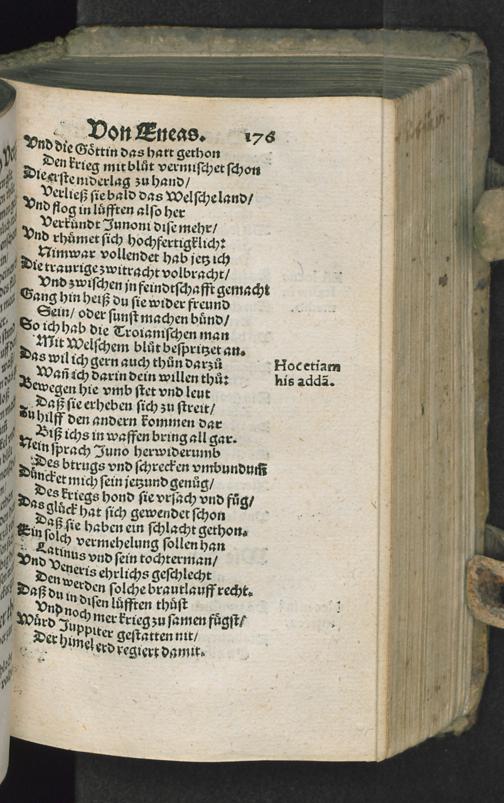 Von Æneas. 176
Vnd die Göttin das hatt gethon
Den krieg mit blůt vermischet schon
Die erste niderlag zu hand/
Verließ sie bald das Welsche land/
Vnd flog in lüfften also her
Verkündt Junoni dise mehr/
Vnd rhümet sich hochfertigklich:
Nimwar vollendet hab jetz ich
Die traurige zwitracht volbracht/
Vnd zwischen jn feindtschafft gemacht
Gang hin heiß du sie wider freund
Sein/ oder sunst machen bünd/
So ich hab die Troianischen man
Mit Welschem blůt bespritzet an.
Das wil ich gern auch thůn darzů
Wañ ich darin dein willen thů:
Bewegen hie vmb stet vnd leut
Daß sie erheben sich zu streit/
Zu hilff den andern kommen dar
Biß ichs in waffen bring all gar.
Nein sprach Juno herwiderumb
Des btrugs vnd schrecken vmbundum̃
Düncket mich sein jetzund genüg/
Des kriegs hond sie vrsach vnd füg/
Das glück hat sich gewendet schon
Daß sie haben ein schlacht gethon.
Ein solch vermehelung sollen han
Latinus vnd sein tochterman/
Vnd Veneris ehrlichs geschlecht
Den werden solche brautlauff recht.
Daß du in disen lüfften thůst
Vnd noch mer krieg zu samen fügst/
Würd Juppiter gestatten nit/
Der himel erd regiert damit.
Hoc etiam
his addã.